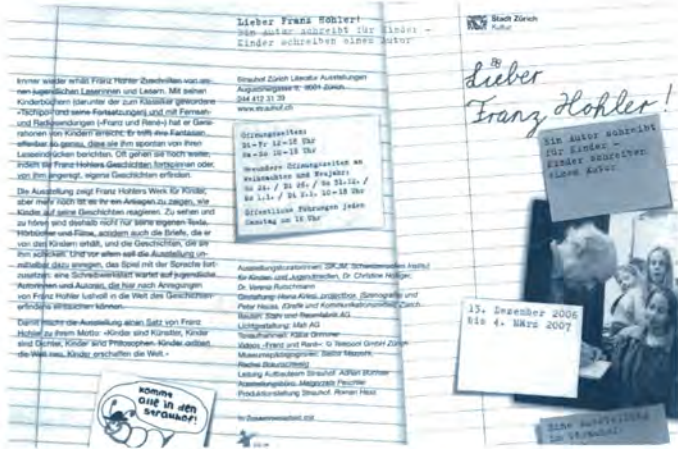 Immer wieder erhält Franz Hohler Zuschriften von sei-
nen jugendlichen Leserinnen und Lesern. Mit seinen
Kinderbüchern (darunter der zum Klassiker gewordene
«Tschipo» und seine Fortsetzungen) und mit Fernseh-
und Radiosendungen («Franz und René») hat er Gene-
rationen von Kindern erreicht. Er trifft ihre Fantasien
offenbar so genau, dass sie ihm spontan von ihren
Leseeindrücken berichten. Oft gehen sie noch weiter,
indem sie Franz Hohlers Geschichten fortspinnen oder,
von ihm angeregt, eigene Geschichten erfinden.
Die Ausstellung zeigt Franz Hohlers Werk für Kinder,
aber mehr noch ist es ihr ein Anliegen zu zeigen, wie
Kinder auf seine Geschichten reagieren. Zu sehen und
zu hören sind deshalb nicht nur seine eigenen Texte,
Hörbücher und Filme, sondern auch die Briefe, die er
von den Kindern erhält, und die Geschichten, die sie
ihm schicken. Und vor allem soll die Ausstellung un-
mittelbar dazu anregen, das Spiel mit der Sprache fort-
zusetzen: eine Schreibwerkstatt wartet auf jugendliche
Autorinnen und Autoren, die hier nach Anregungen
von Franz Hohler lustvoll in die Welt des Geschichten-
erfindens eintauchen können.
Damit macht die Ausstellung einen Satz von Franz
Hohler zu ihrem Motto: «Kinder sind Künstler, Kinder
sind Dichter, Kinder sind Philosophen. Kinder ordnen
die Welt neu, Kinder erschaffen die Welt.»
kommt
alle in den
strauhof!
Lieber Franz Hohler!
Ein Autor schreibt für Kinder –
Kinder schreiben einem Autor
Strauhof Zürich Literatur Ausstellungen
Augustinergasse 9, 8001 Zürich
044 412 31 39
www.strauhof.ch
Öffnungszeiten:
Di–Fr 12–18 Uhr
Sa–So 10–18 Uhr
Besondere Öffnungszeiten an
Weihnachten und Neujahr:
So 24. / Di 26. / So 31.12. /
Mo 1.1. / Di 2.1. 10–18 Uhr
Öffentliche Führungen jeden
Samstag um 16 Uhr
Ausstellungskuratorinnen: SIKJM, Schweizerisches Institut
für Kinder- und Jugendmedien, Dr. Christine Holliger,
Dr. Verena Rutschmann
Gestaltung: (Szenografie) und
Peter (Grafik und Kommunikation), Zürich
Bauten: Stahl und Traumfabrik AG
Lichtgestaltung: Mati AG
Tonaufnahmen:
Videos «Franz und René»: © Telepool GmbH Zürich
Museumspädagoginnen:
Leitung Aufbauteam Strauhof: Adrian
Ausstellungsbüro: Malgorzata Peschler
Produktionsleitung Strauhof: Roman Hess
In Zusammenarbeit mit
Stadt Zürich
Kultur
Lieber
Franz Hohler!
Ein Autor schreibt
für Kinder –
Kinder schreiben
einem Autor
13. Dezember 2006
bis 4. März 2007
Eine Ausstellung
im Strauhof